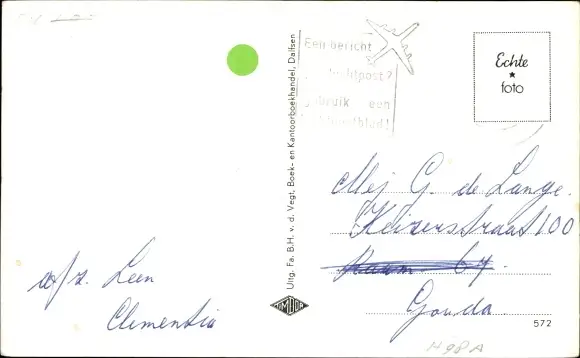 Een bericht
luchtpost?
gebruik een
Echte
foto
Uitg. Fa. B.H. v. d. Vegt, Boek- en Kantoorboekhandel, Dalfsen
Mej G. de Lange.
Keizerstraat 100
67.
Gouda.
afz. Leen
Clementia
572